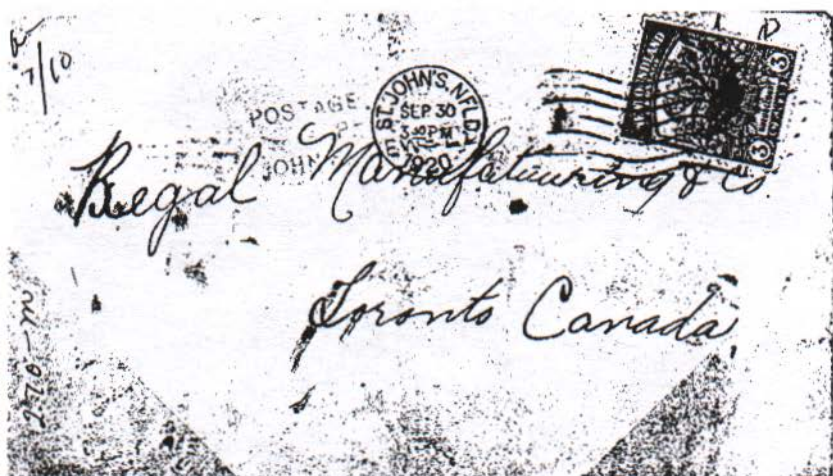 7/10
POSTAGE
JOHN
ST. JOHN'S, NFLD.
SEP 30
3 30 PM
1920
NEWFOUNDLAND
3 3
Regal Manufacturing & Co
Toronto Canada